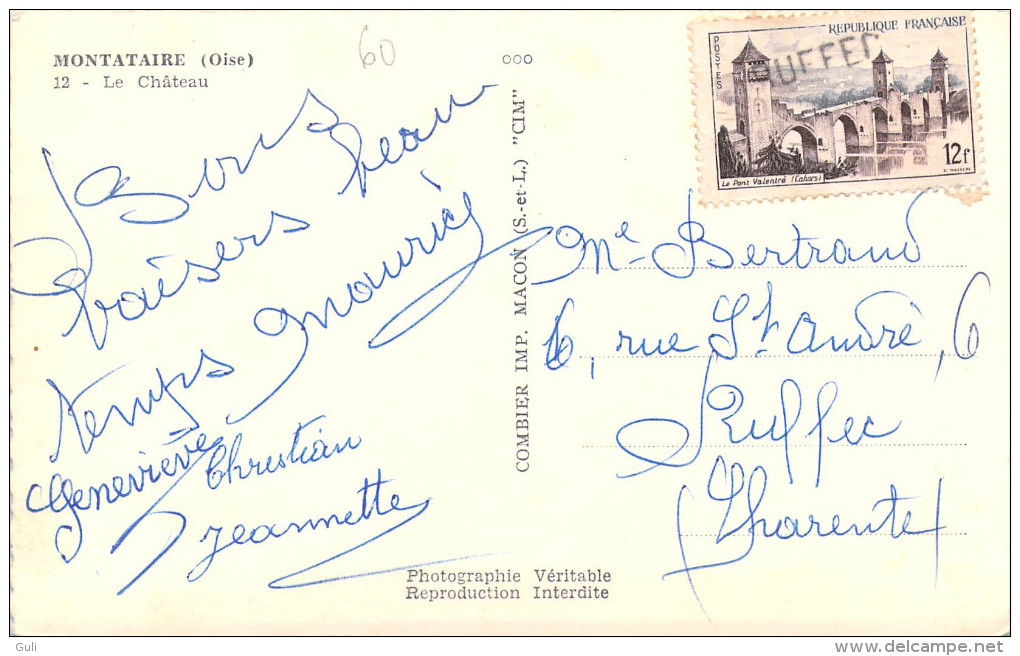 MONTATAIRE (Oise)
12 - Le Château
60
ooo
Bons
baisers beau
temps Mauric
Geneviève
Christian
Jeannette
COMBIER IMP. MACON (S.-et-L.) "CIM"
Photographie Véritable
Reproduction Interdite
POSTES
REPUBLIQUE FRANÇAISE
RUFFEC
Le Pont Valentré (Cahors)
12f
Me Bertrand
6, rue St André, 6
Ruffec
(Charente)
Guli
delcampe.net